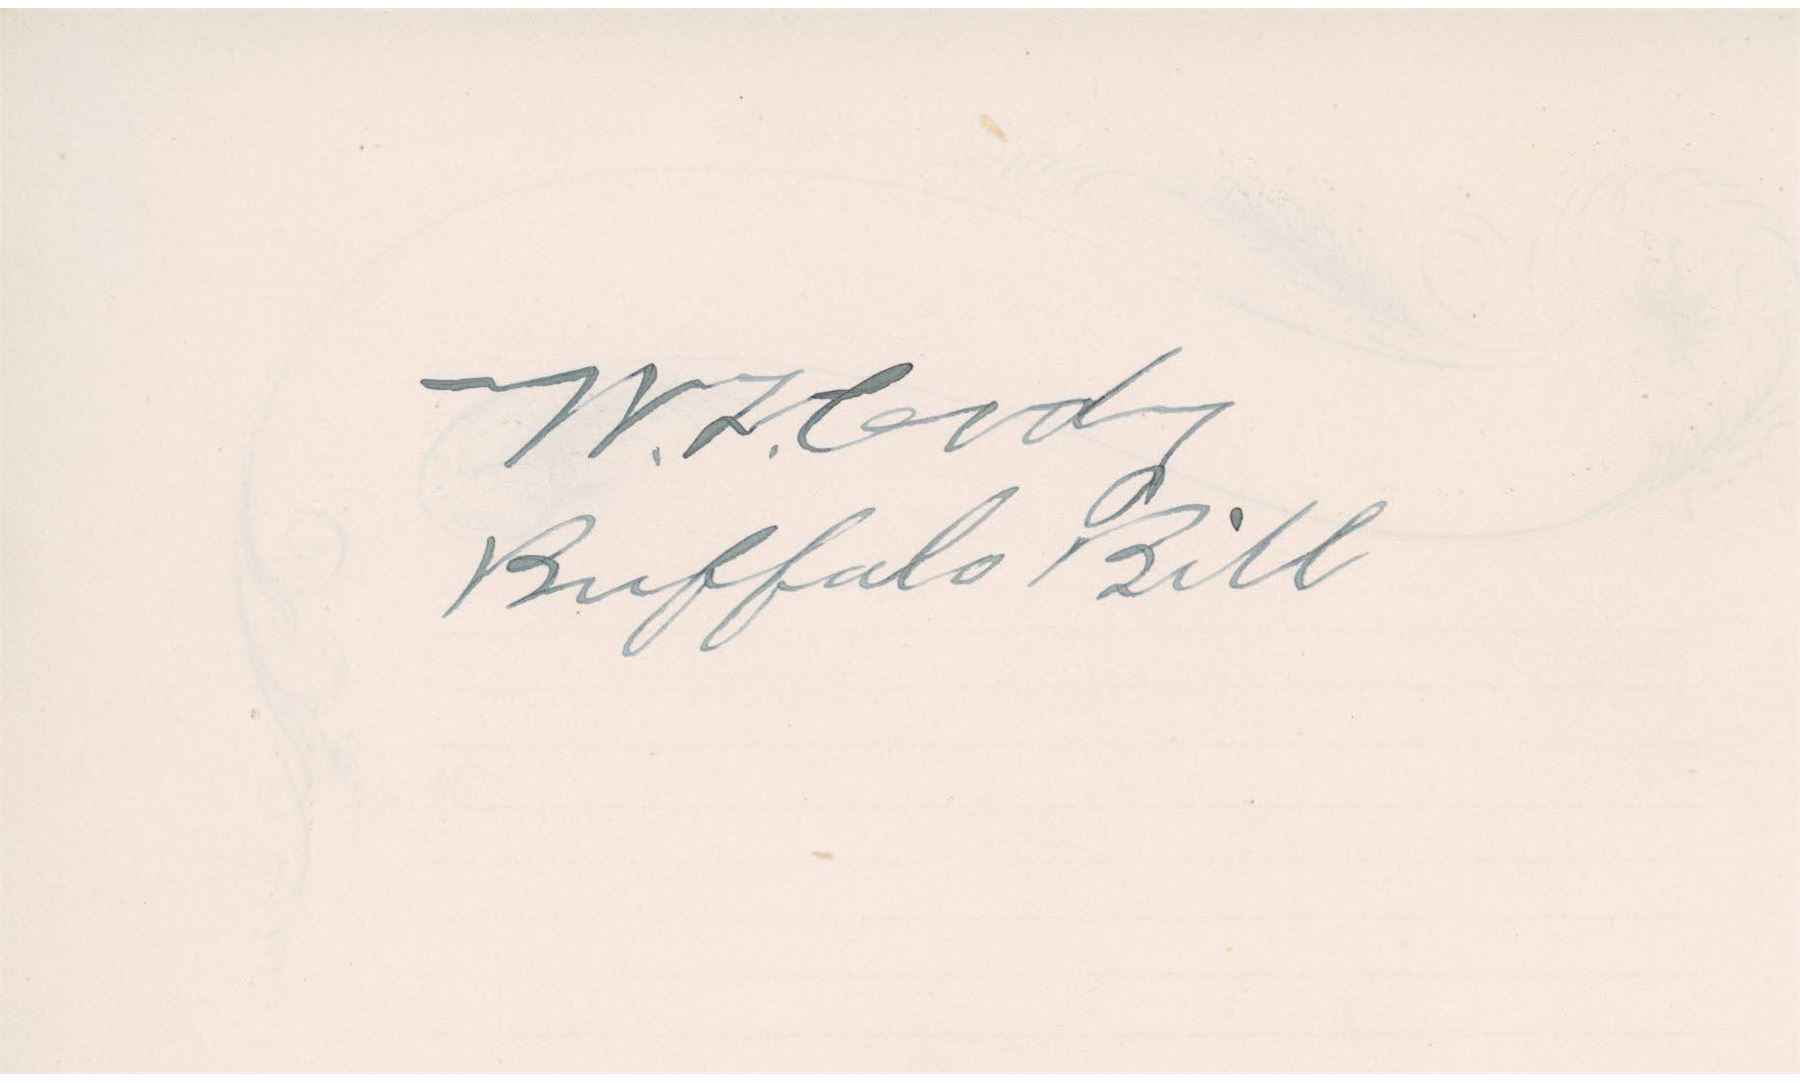 W. F. Cody
Buffalo Bill